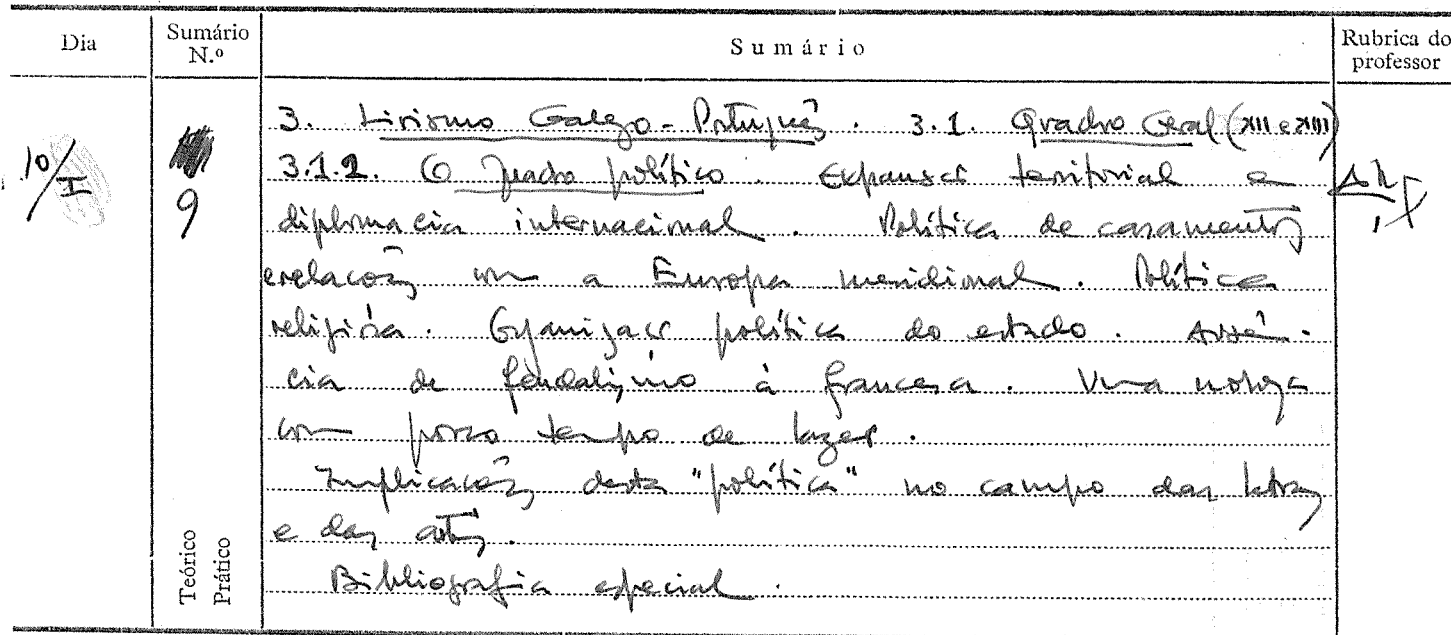 Dia
Sumário N.º
Sumário
Rubrica do professor
10/I
9
3. Lirismo Galego-Português. 3.1. Quadro Geral (XII e XIII)
3.1.2. O Quadro político. Expansão territorial e
diplomacia internacional. Política de casamentos
e relações com a Europa meridional. Política
religiosa. Organização política do estado. Ausên-
cia de feudalismo à francesa. Uma nobreza
com pouco tempo de lazer.
Implicações desta "política" no campo das letras
e das artes.
Bibliografia especial.
Teórico
Prático